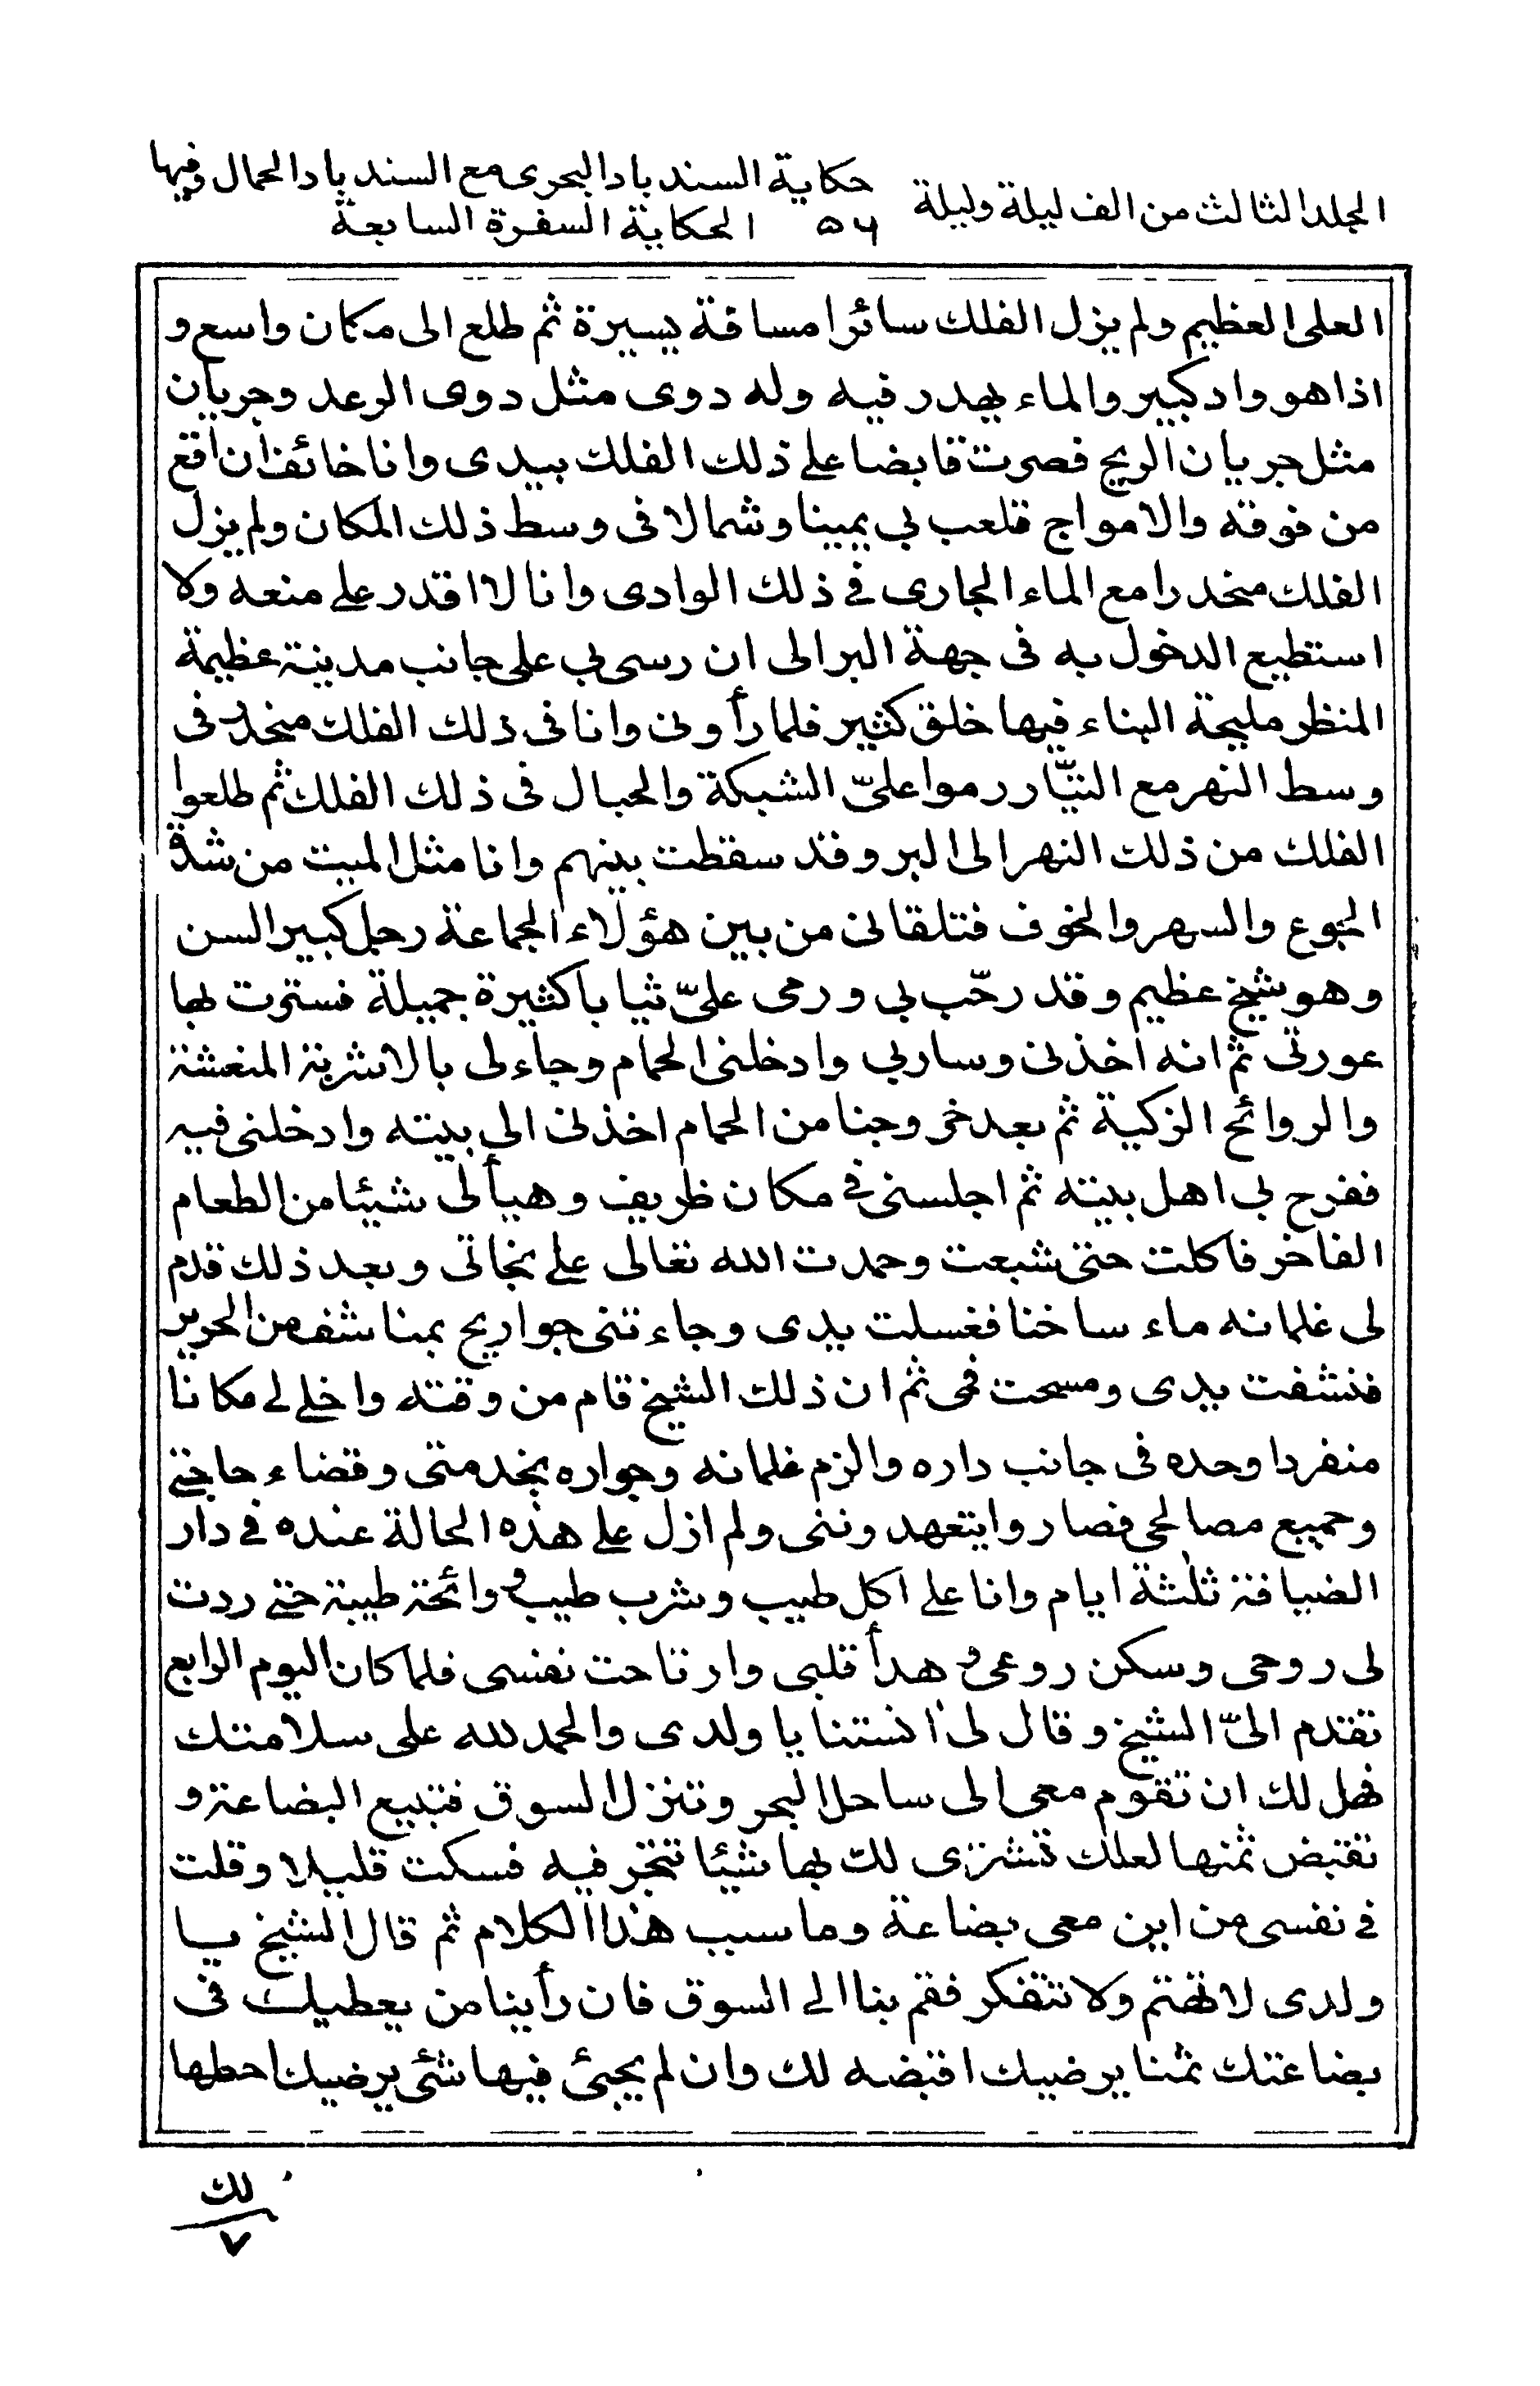 المجلد الثالث من الف ليلة وليلة ٥٦ حكاية السندباد البحرى مع السندباد الحمال وفيها
الحكاية السفرة السابعة
العلى العظيم ولم يزل الفلك سائرا مسافة يسيرة ثم طلع الى مكان واسع و
اذا هو واد كبير والماء يهدر فيه وله دوى مثل دوى الرعد وجريان
مثل جريان الريح فصرت قابضا على ذلك الفلك بيدى وانا خائف ان اقع
من فوقه والامواج تلعب بى يمينا وشمالا فى وسط ذلك المكان ولم يزل
الفلك منحدرا مع الماء الجارى فى ذلك الوادى وانا لا اقدر على منعه ولا
استطيع الدخول به فى جهة البر الى ان رسى بى على جانب مدينة عظيمة
المنظر مليحة البناء فيها خلق كثير فلما رأونى وانا فى ذلك الفلك منحدر فى
وسط النهر مع التيّار رموا علىّ الشبكة والحبال فى ذلك الفلك ثم طلعوا
الفلك من ذلك النهر الى البر وقد سقطت بينهم وانا مثل الميت من شدة
الجوع والسهر والخوف فتلقانى من بين هؤلاء الجماعة رجل كبير السن
وهو شيخ عظيم وقد رحّب بى ورمى علىّ ثيابا كثيرة جميلة فسترت بها
عورتى ثم انه اخذنى وسار بى وادخلنى الحمام وجاء لى بالاشربة المنعشة
والروائح الزكية ثم بعد خروجنا من الحمام اخذنى الى بيته وادخلنى فيه
ففرح بى اهل بيته ثم اجلسنى فى مكان ظريف وهيأ لى شيئا من الطعام
الفاخر فاكلت حتى شبعت وحمدت الله تعالى على نجاتى وبعد ذلك قدم
لى غلمانه ماء ساخنا فغسلت يدى وجاءتنى جواريح بمناشف من الحرير
فنشفت يدى ومسحت فمى ثم ان ذلك الشيخ قام من وقته واخلى لى مكانا
منفردا وحده فى جانب داره والزم غلمانه وجواره بخدمتى وقضاء حاجتى
وجميع مصالحى فصاروا يتعهدوننى ولم ازل على هذه الحالة عنده فى دار
الضيافة ثلٰثة ايام وانا على اكل طيب وشرب طيب ورائحة طيبة حتى ردت
لى روحى وسكن روعى وهدأ قلبى وارتاحت نفسى فلما كان اليوم الرابع
تقتدم الىّ الشيخ وقال لى انستنا يا ولدى والحمد لله على سلامتك
فهل لك ان تقوم معى الى ساحل البحر وتنزل السوق فتبيع البضاعة و
تقبض ثمنها لعلك تشترى لك بها شيئا تتجر فيه فسكت قليلا وقلت
فى نفسى من اين معى بضاعة وما سبب هذا الكلام ثم قال الشيخ يا
ولدى لا تهتم ولا تتفكر فقم بنا الى السوق فان رأينا من يعطيك فى
بضاعتك ثمنا يرضيك اقبضه لك وان لم يجئ فيها شئ يرضيك احطها
لك
٧